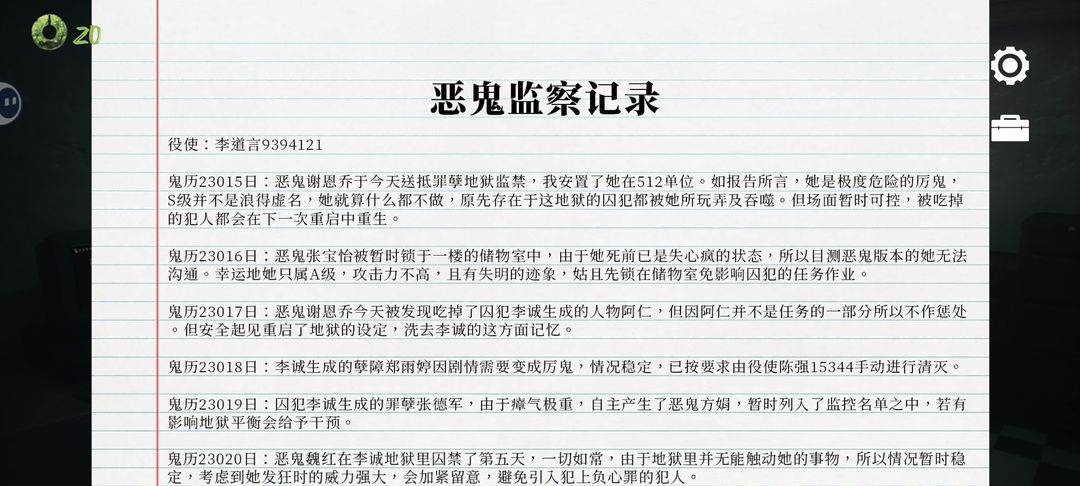 20
恶鬼监察记录
役使：李道言9394121
鬼历23015日：恶鬼谢恩乔于今天送抵罪孽地狱监禁，我安置了她在512单位。如报告所言，她是极度危险的厉鬼，
S级并不是浪得虚名，她就算什么都不做，原先存在于这地狱的囚犯都被她所玩弄及吞噬。但场面暂时可控，被吃掉
的犯人都会在下一次重启中重生。
鬼历23016日：恶鬼张宝怡被暂时锁于一楼的储物室中，由于她死前已是失心疯的状态，所以目测恶鬼版本的她无法
沟通。幸运地她只属A级，攻击力不高，且有失明的迹象，姑且先锁在储物室免影响囚犯的任务作业。
鬼历23017日：恶鬼谢恩乔今天被发现吃掉了囚犯李诚生成的人物阿仁，但因阿仁并不是任务的一部分所以不作惩处
。但安全起见重启了地狱的设定，洗去李诚的这方面记忆。
鬼历23018日：李诚生成的孽障郑雨婷因剧情需要变成厉鬼，情况稳定，已按要求由役使陈强15344手动进行清灭。
鬼历23019日：囚犯李诚生成的罪孽张德军，由于瘴气极重，自主产生了恶鬼方娟，暂时列入了监控名单之中，若有
影响地狱平衡会给予干预。
鬼历23020日：恶鬼魏红在李诚地狱里囚禁了第五天，一切如常，由于地狱里并无能触动她的事物，所以情况暂时稳
定，考虑到她发狂时的威力强大，会加紧留意，避免引入犯上负心罪的犯人。